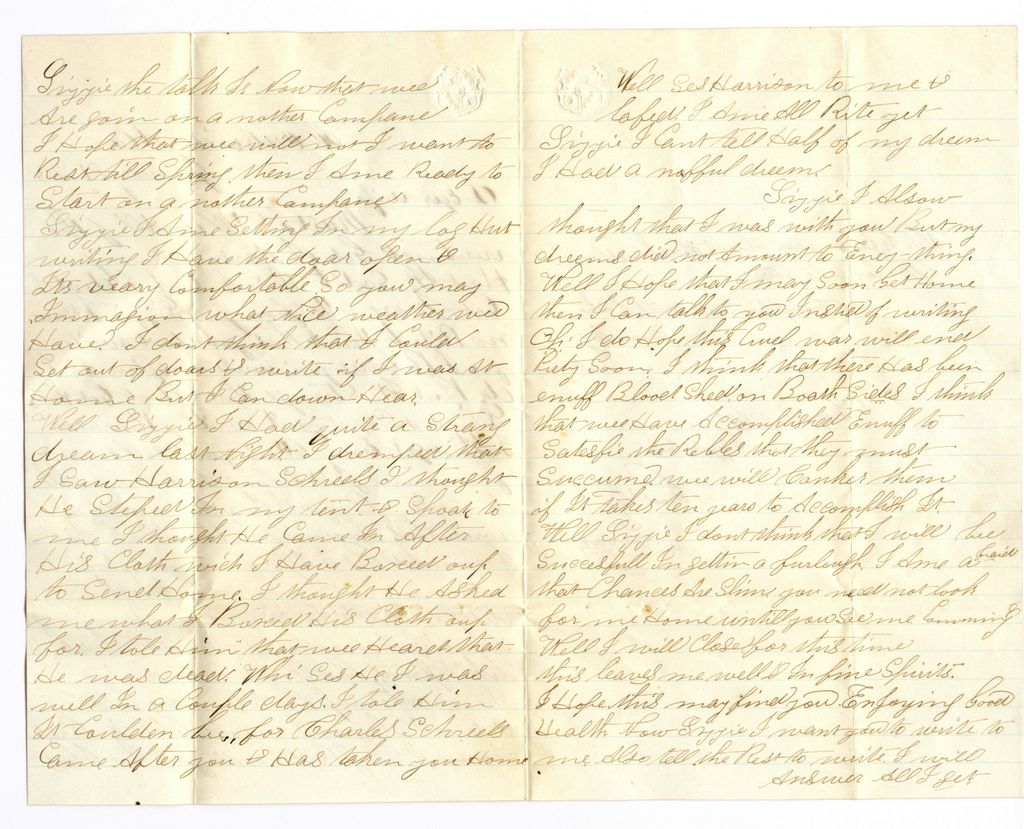 Lizzie the talk Is Now that wee
Are goin on a nother Campane
I Hope that wee will not I want to
Rest till Spring then I Ame Ready to
Start on a nother Campane
Lizzie I Ame Setting In my Log Hut
writing I Have the doar open &
Its veary Comfortable So you may
Immagion what Nice weather wee
Have. I dont think that I Could
Set out of doars & write if I was At
Home But I Can down Hear.
Well Lizzie I Had quite a Strang
dream last Night I dremped that
I Saw Harrison Schreels I thought
He Steped In my tent & Spoak to
me I thought He Came In After
His Cloth wich I Have Boxeed oup
to Send Home. I thought He Asked
me what I Boxeed His Cloth oup
for. I tole Him that wee Heared that
He was dead. Whi Ses He I was
well In a Couple days. I tole Him
It Coulden bee, for Charles Schreels
Came After you & Has taken you Home
Well Ses Harrison to me &
lafed I Ame All Rite yet
Lizzie I Cant tell Half of my dream
I Had a nofful dream.
Lizzie I Alsow
thought that I was with you But my
dreems did not Amount to Eney-thing.
Well I Hope that I may Soon Get Home
then I Can talk to you Insted of writing
Oh. I do Hope this Cruel war will end
Prety Soon. I think that there Has bein
enuff Blood Shed on Boath Sides I think
that wee Have Accomplished Enuff to
Satesfie the Rebles that they must
Succume. wee will Conker them
if It takes ten years to Accomplish It.
Well Lizzie I dont think that I will bee
Succesfull In gettin a furlough. I Ame afraid
that Chances Are Slim, you need not look
for me Home until you See me Comming
Well I will Close for this time
this leaves me well & In fine Spirits.
I Hope this may find you Enjoying Good
Health Now Lizzie I want you to write to
me Also tell the Rest to write. I will
Answer All I get.